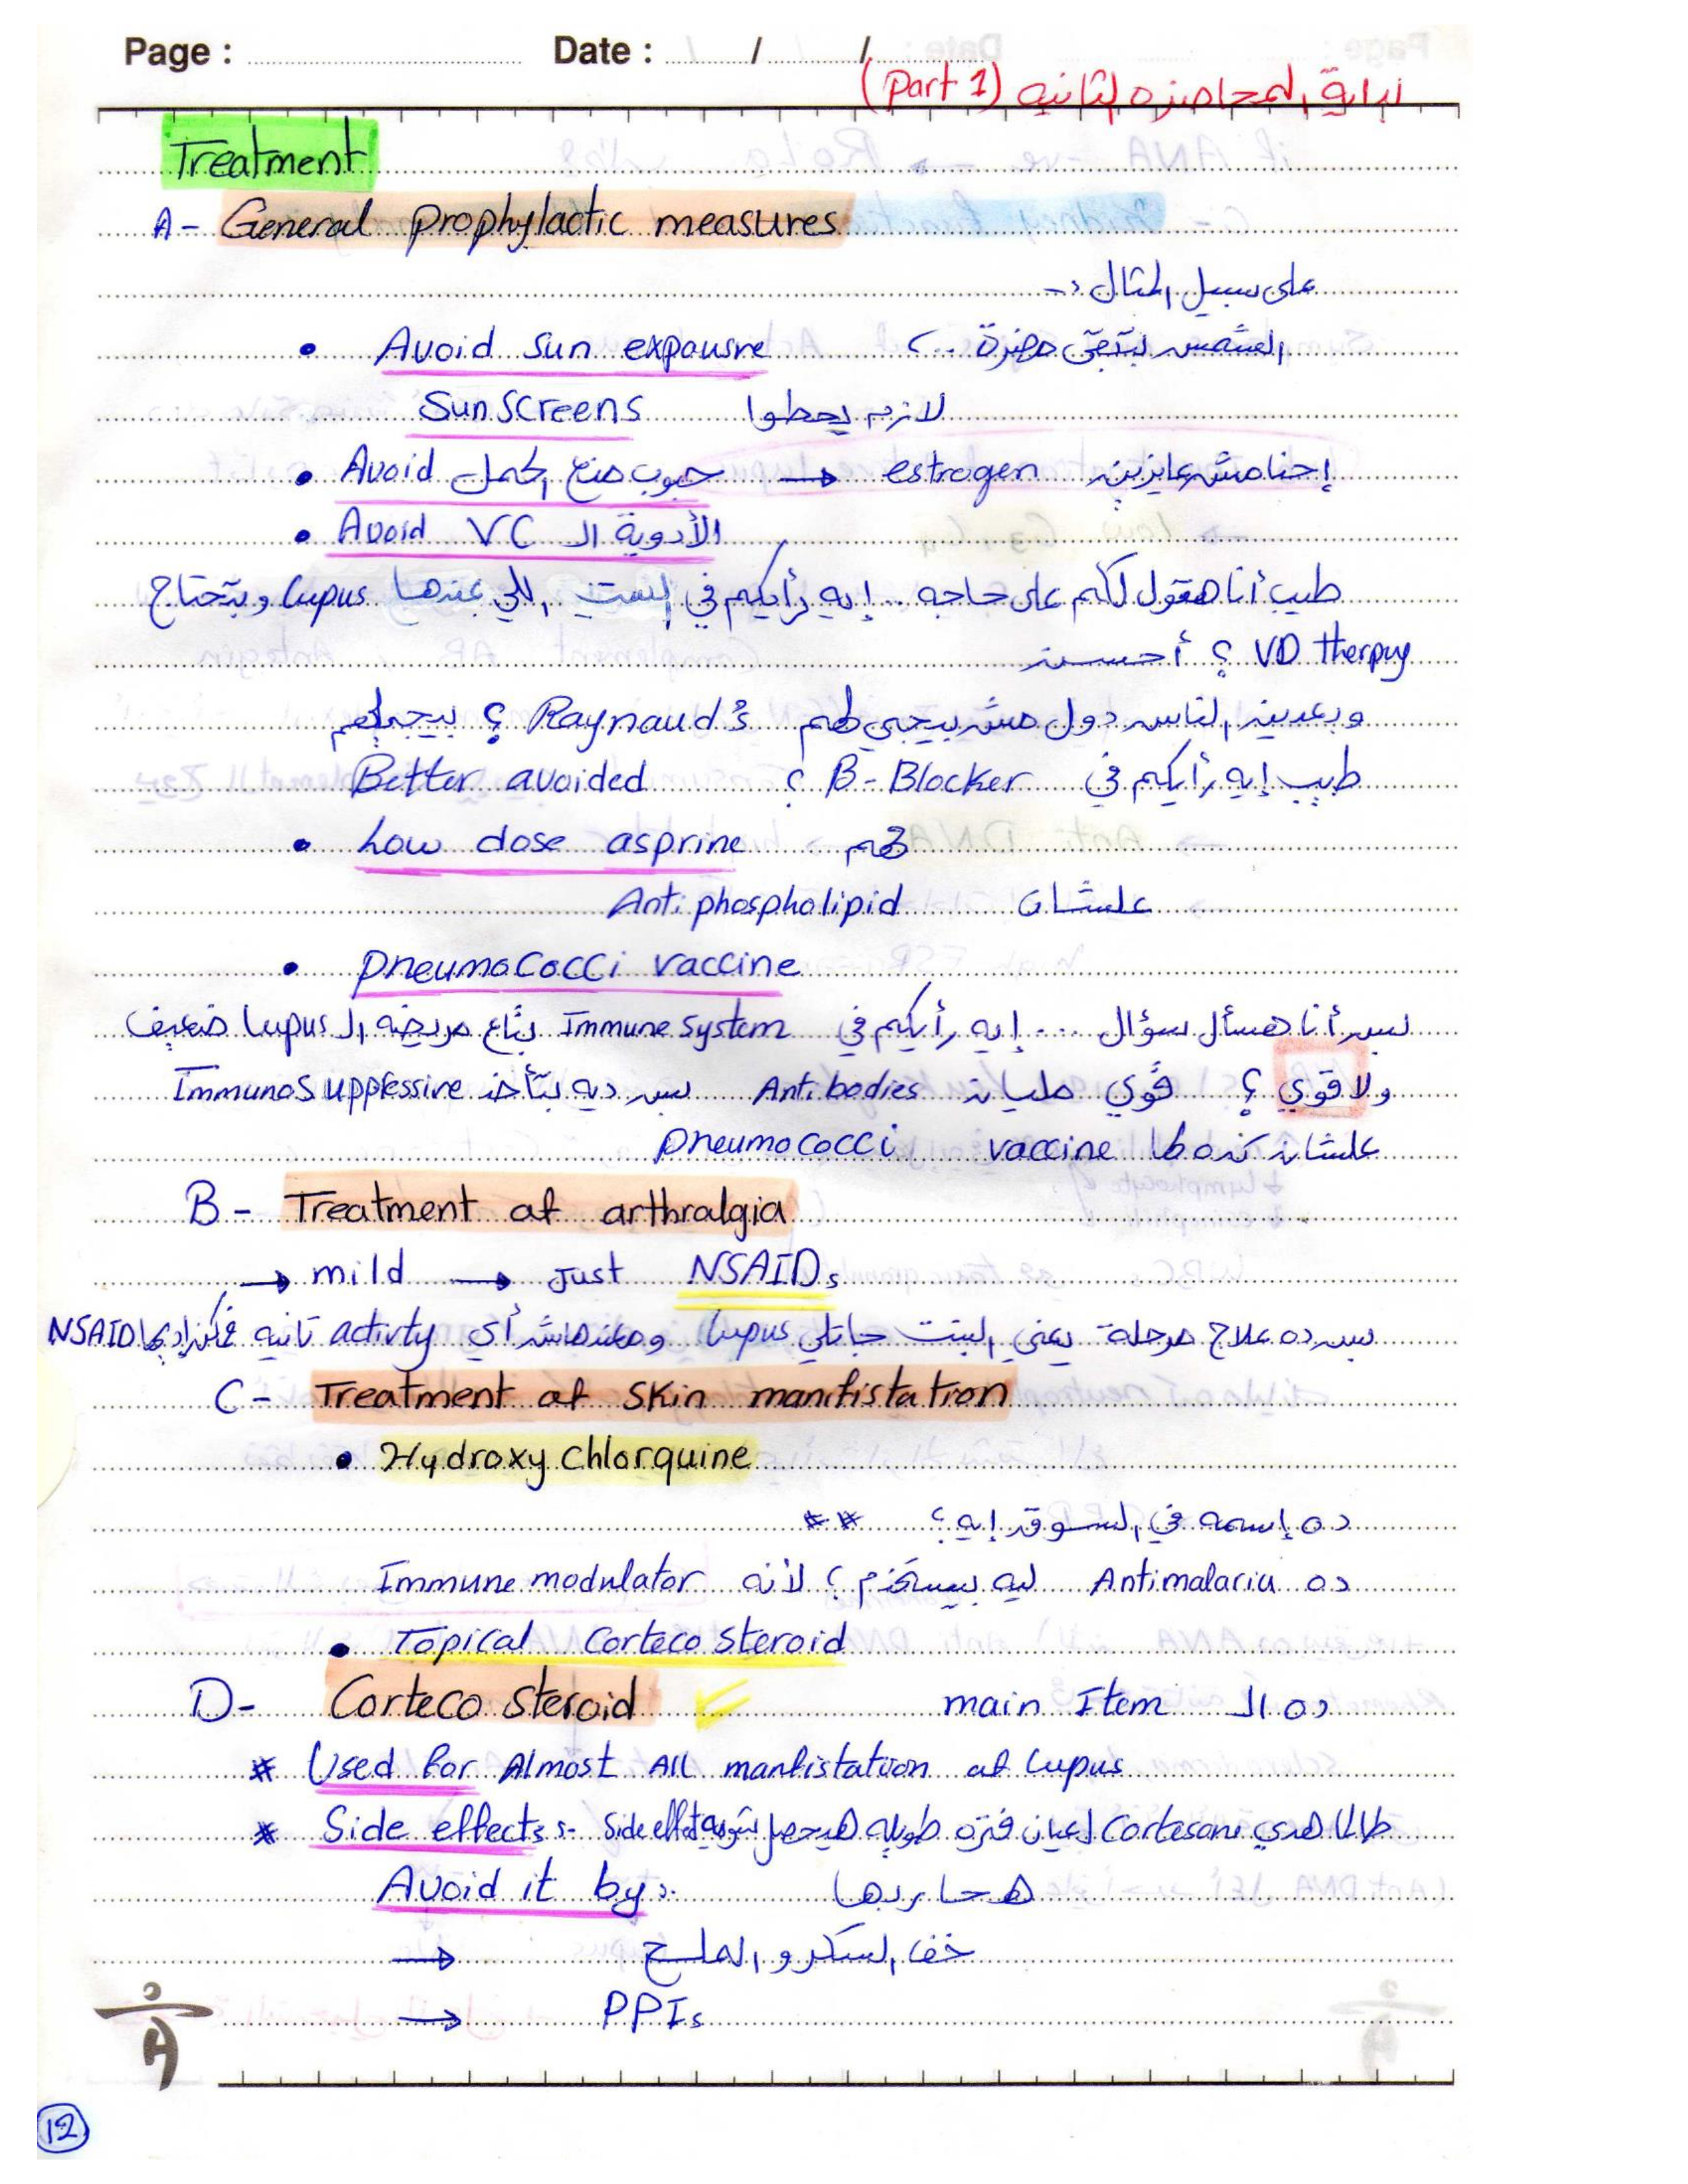 Page : Date : / /
بداية المحاضره الثانيه (Part 1)
Treatment
A- General prophylactic measures
على سبيل المثال :-
• Avoid sun expousre الشمس بتبقى مضرة ..
Sun Screens لازم يحطوا
• Avoid حبوب منع الحمل → estrogen إحنا مش عايزين
• Avoid VC الأدوية الـ
طيب أنا هقول لكم على حاجه .. إيه رأيكم في الست اللي عندها Lupus وبتحتاج
VD therpuy ؟ أحسن
وبعدين الناس دول مش بيجي لهم Raynaud's ؟ بيجيلهم
طيب إيه رأيكم في B-Blocker ؟ Better avoided
• Low dose asprine مهم
علشان Antiphospholipid
• Pneumococci vaccine
بس أنا هسأل سؤال ... إيه رأيكم في Immune system بتاع مريضه الـ Lupus ضعيف
ولا قوي ؟ قوي مليان Antibodies بس ديه بتأخذ Immunosuppressive
علشان كده لها Pneumococci vaccine
B- Treatment of arthralgia
→ mild → Just NSAIDs
بس ده علاج مرحلة يعني البنت جاتلي Lupus ومعندهاش أي activty تانيه NSAID
C- Treatment of skin manifistation
• Hydroxy chlorquine
ده إسمه في السوق إيه ؟ **
ده Antimalaria ليه بيستخدم ؟ لأنه Immune modulator
• Topical Corteco steroid
D- Corteco steroid ده الـ main Item
* Used for Almost All manfistation of Lupus
* Side effects :- طالما هدي Cortesone لعيان فتره طويله هيحصل شوية Side effect
Avoid it by :- هحاربها
→ خف السكر و الملح
→ PPIs
12